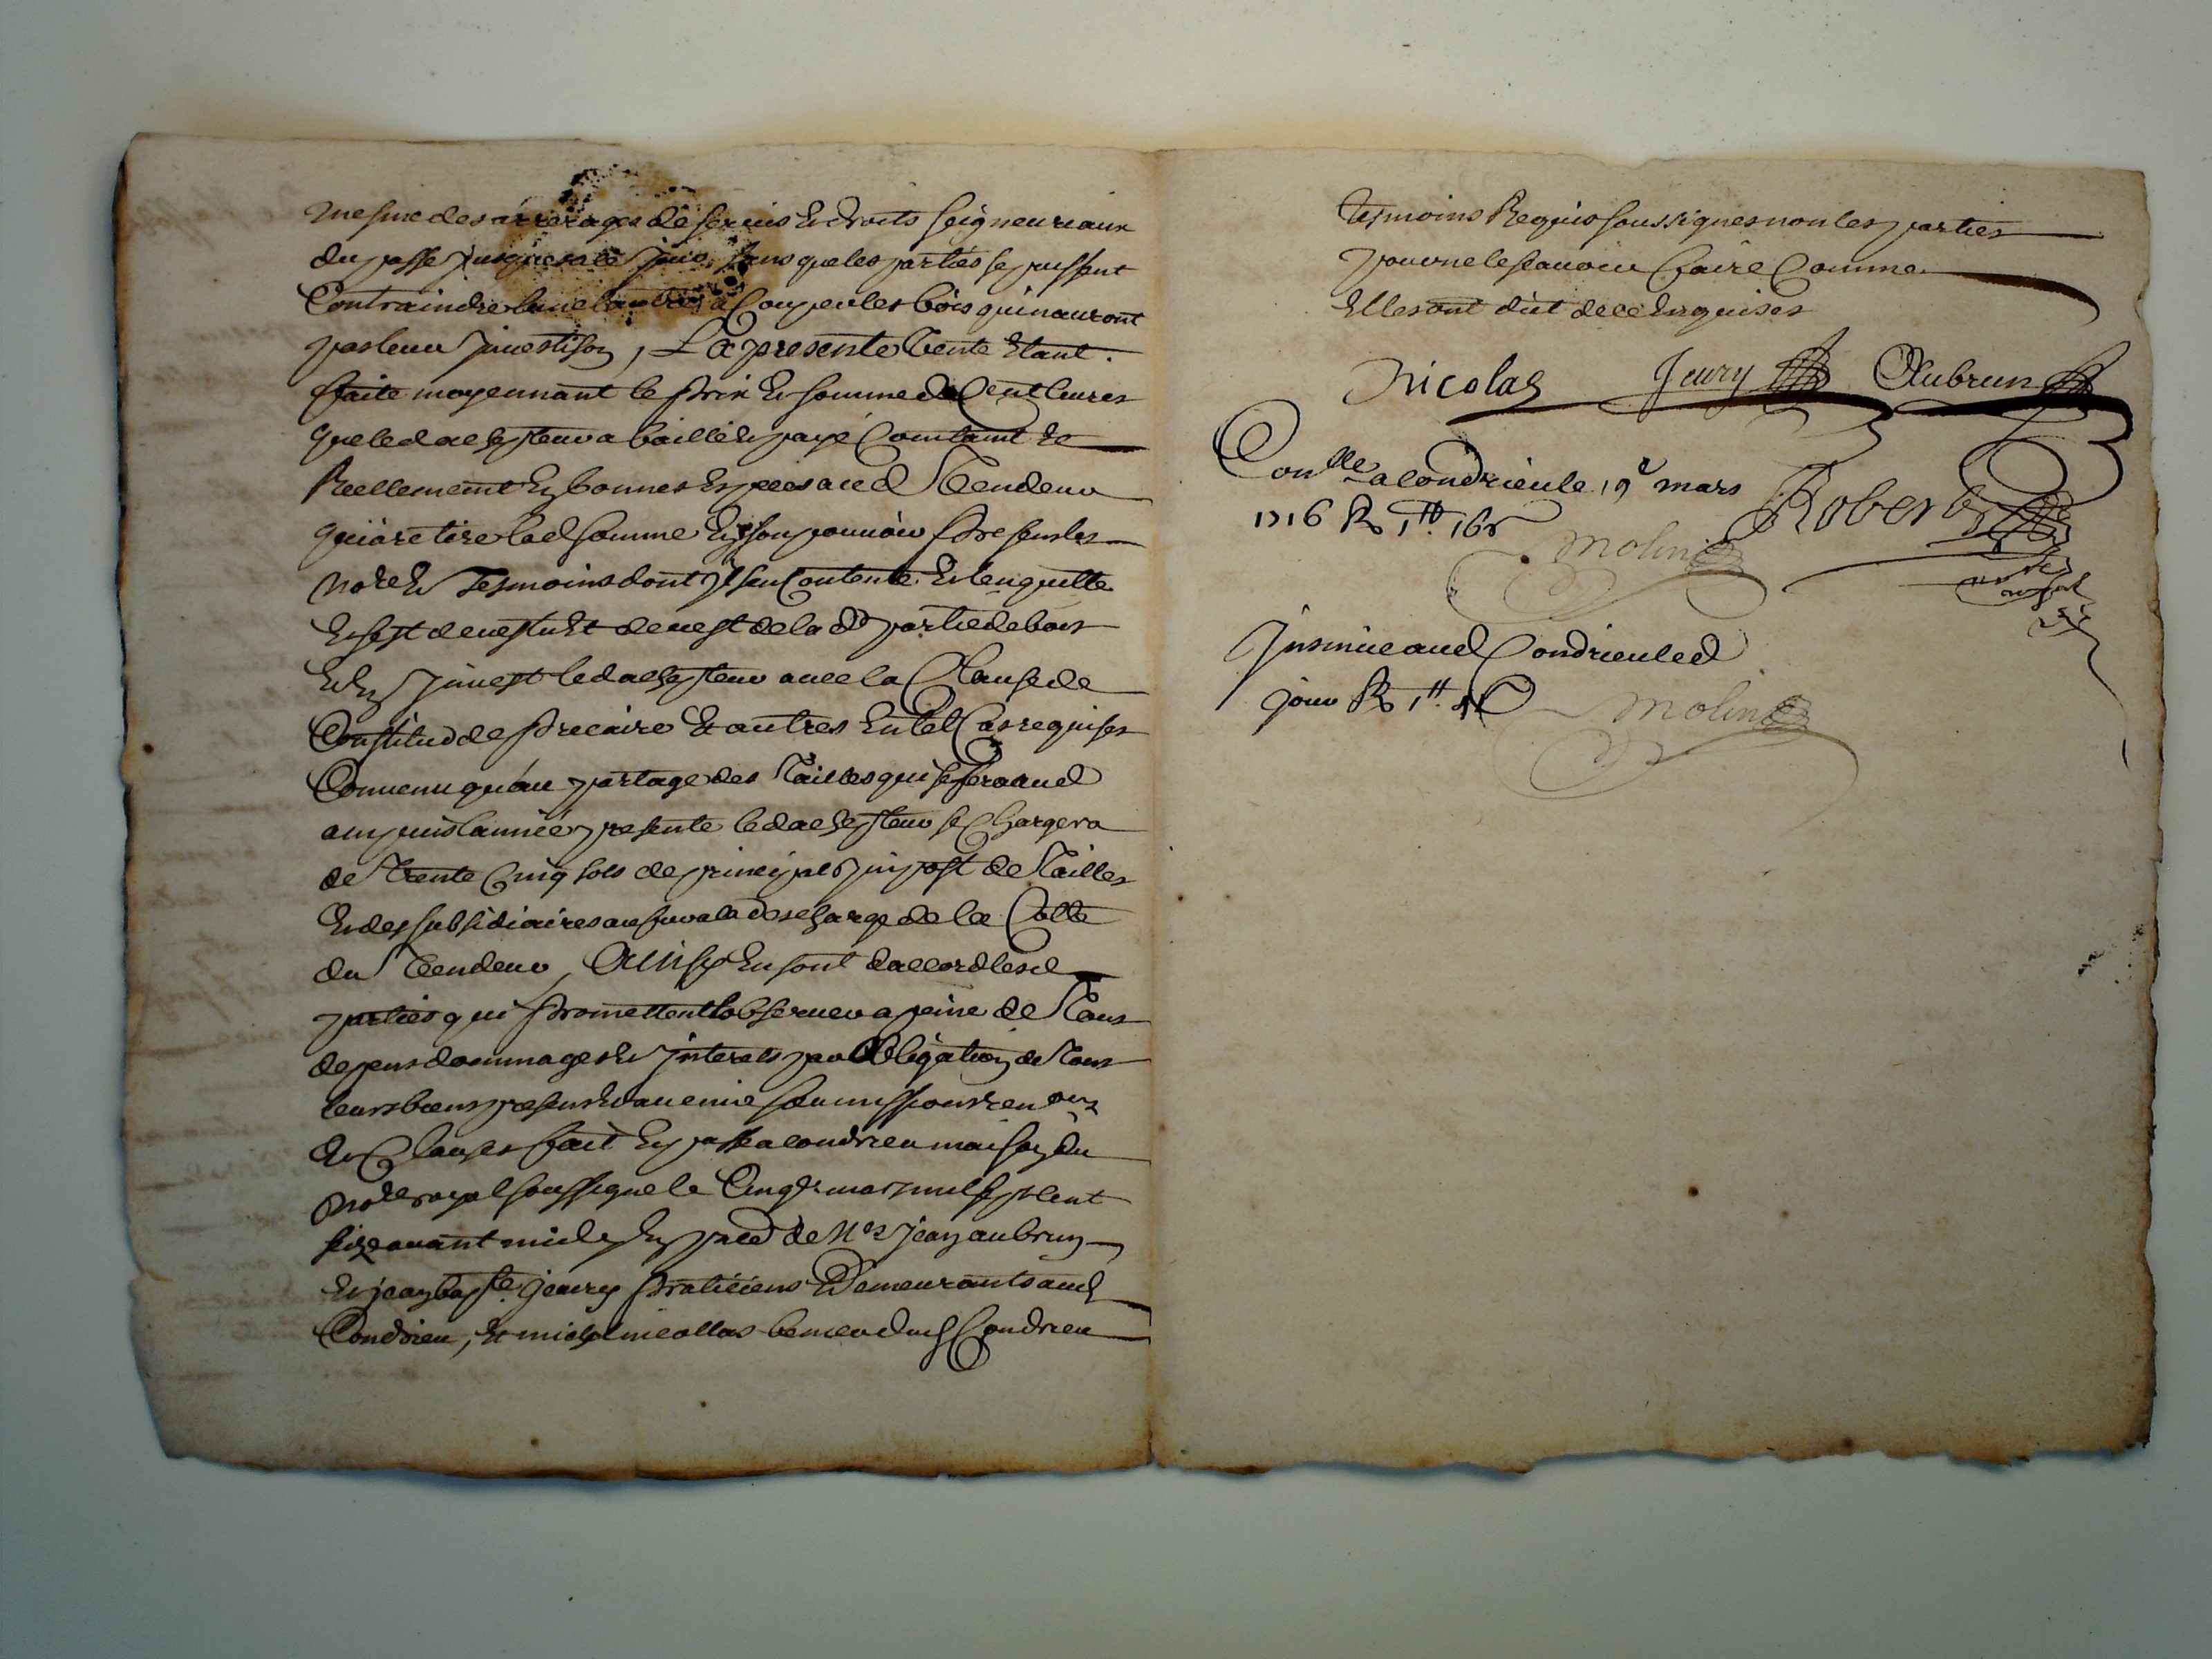 mesme des arrerages de servis & droits seigneuriaux
du passé jusques a ce jour, sans que les parties se puissent
Contraindre lune lautre a Couper les bois qui nauront
pas leur
La presente Vente etant
ffaite moyennant le prix & somme de Cent livres
que led achepteur a baillé & payé Comtant &
Reellement En bonnes Especes aud Vendeur
qui a retiré lad somme En son pouvoir presents les
no.re & Tesmoins dont Il sen Contente Et len quitte
Et sest devestu Et devest de lad.e partie de bois
Et En Invest led achepteur avec la Clause de
Constitud de precaire & autres En tel Cas requises
Convenu quau partage des Tailles qui se fera aud
ampuis lannée presente led achepteur se Chargera
de Trente Cinq sols de principal Impost de Tailles
Et des subsidiaires au fur a la descharge de la Cotte
du Vendeur, Ainsy En sont daccord lesd
parties qui promettent lobserver a peine de Tous
depens dommages & Interets par Obligation de Tous
leurs biens presents & avenir soumissions renon.ons
& Clauses fait & passé a condrieu maison du
no.re royal soussigné le Cinq.e mars mil sept Cent
seize avant midy En pnce de Mes Jean aubrun
Et jean bap.te jeury praticiens Demeurants aud
Condrieu, Et michel nicollas dud Condrieu
tesmoins Requis soussignes non les parties
pour ne le scavoir ffaire Comme
Elles ont dit de ce Enquises
Nicolas Jeury Aubrun
Con.lle a condrieu le 19e mars
1716 R 1tt 16s
Molin
Robert
Insinué aud Condrieu led
jour R 1tt
Molin